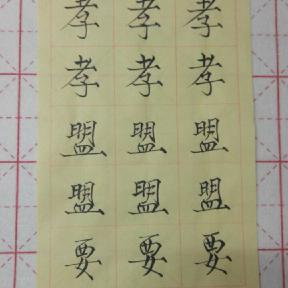 孝孝孝
孝孝孝
盟盟盟
盟盟盟
要要要